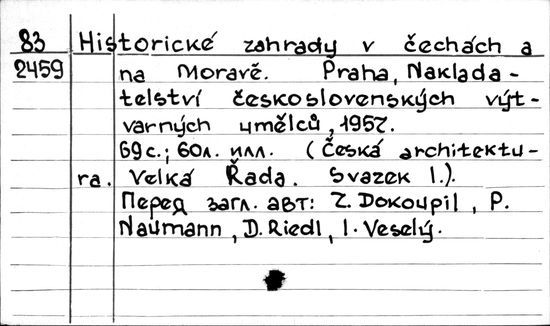 83 Historické zahrady v čechách a
2459 na Moravě. Praha, Naklada-
telství československých výt-
varných umělců, 1957.
69 с.; 60л. илл. (Česká architektu-
ra. Velká Řada. Svazek I.).
Перед загл. авт: Z. Dokoupil, P.
Naumann, D. Riedl, I. Veselý.